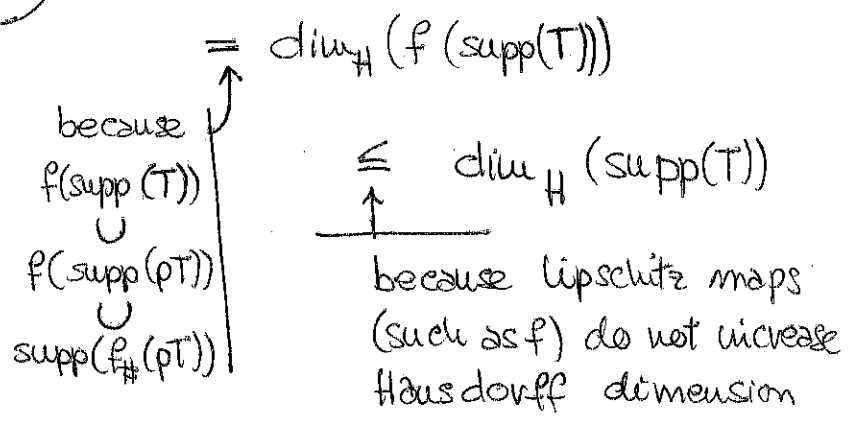 = dim_H (f (supp(T)))
because
f(supp (T))
∪
f(supp(ρT))
∪
supp(f_#(ρT))
≤ dim_H (supp(T))
because Lipschitz maps
(such as f) do not increase
Hausdorff dimension